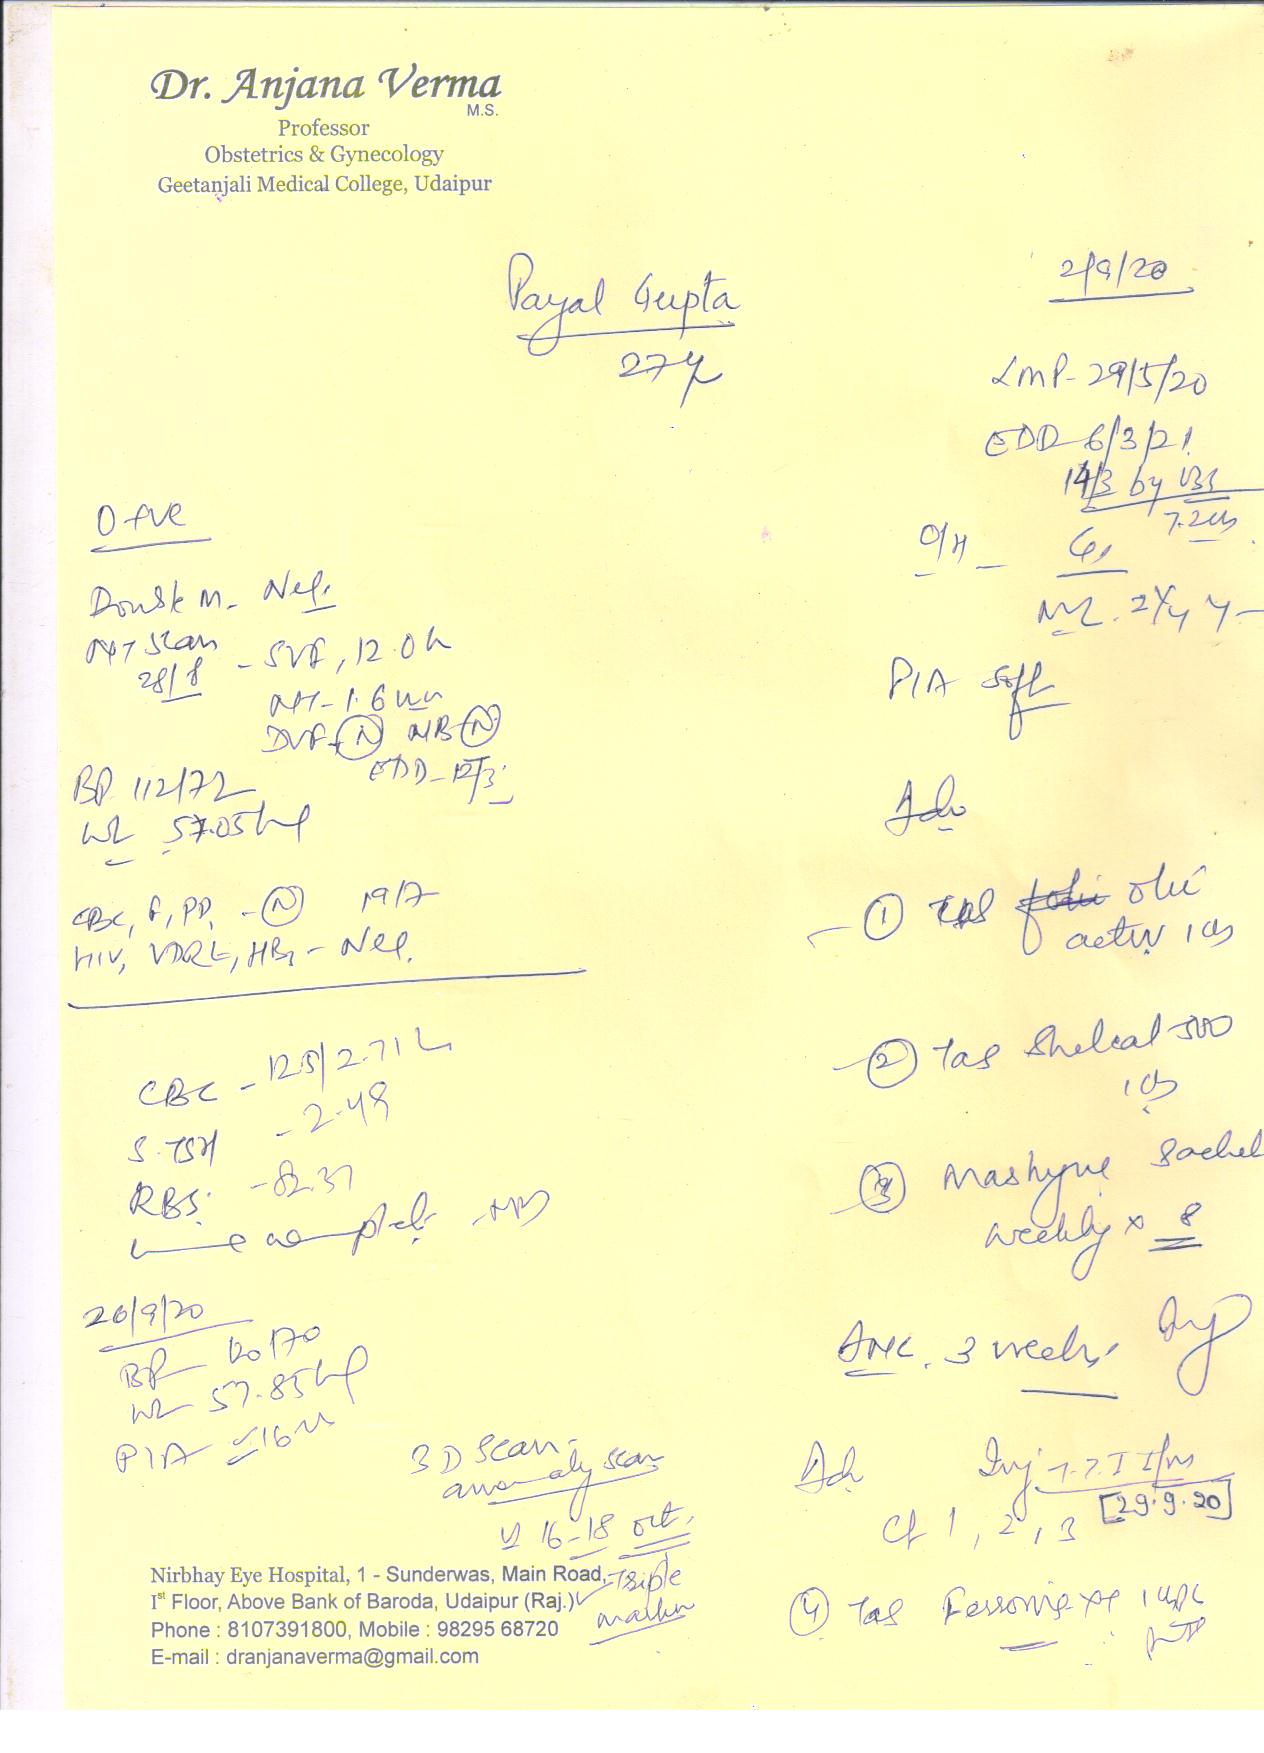 Dr. Anjana Verma
M.S.
Professor
Obstetrics & Gynecology
Geetanjali Medical College, Udaipur
Payal Gupta
27y
2/9/20
LMP- 29/5/20
EDD 6/3/21
14/3 by USS
O/H - G1
P/A soft
O +ve
Double M. - Neg.
NT Scan
28/8 - SVF, 12.0
NT- 1.6 mm
DVF- (N) NB (N)
EDD- 12/3
BP 112/72
Wt 57.05 kg
CBC, F, PP, - (N) 19/7
HIV, VDRL, HBs - Neg.
CBC - 12.5/2.71 L
S. TSH - 2.48
RBS - 82.37
Adv
① Tab
activ 1 OD
② Tab Shelcal 500
1 OD
③ Sachet
weekly x 8
ANC. 3 weeks
26/9/20
BP 120/70
Wt 57.85 kg
P/A 16
3D Scan -
anomaly scan
16-18 Oct.
Triple
marker
Adv Inj T.T. I I/M
[29.9.20]
Ct 1, 2, 3
④ Tab
Nirbhay Eye Hospital, 1 - Sunderwas, Main Road,
Ist Floor, Above Bank of Baroda, Udaipur (Raj.)
Phone : 8107391800, Mobile : 98295 68720
E-mail : dranjanaverma@gmail.com